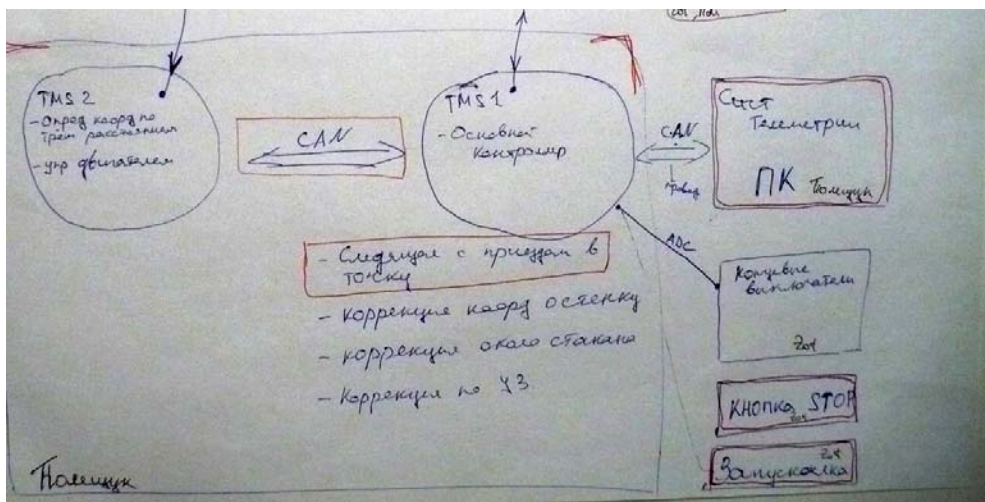 TMS 2
- Опред коорд по
трем расстояниям
- упр двигателем
CAN
TMS 1
- Основной
контроллер
CAN
провод
Сист
Телеметрии
ПК
ADC
Концевые
выключатели
Zoy
- Следящая с приездом в
точку
- коррекция коорд о стенку
- коррекция около стакана
- Коррекция по УЗ
КНОПКА STOP
Запускалка